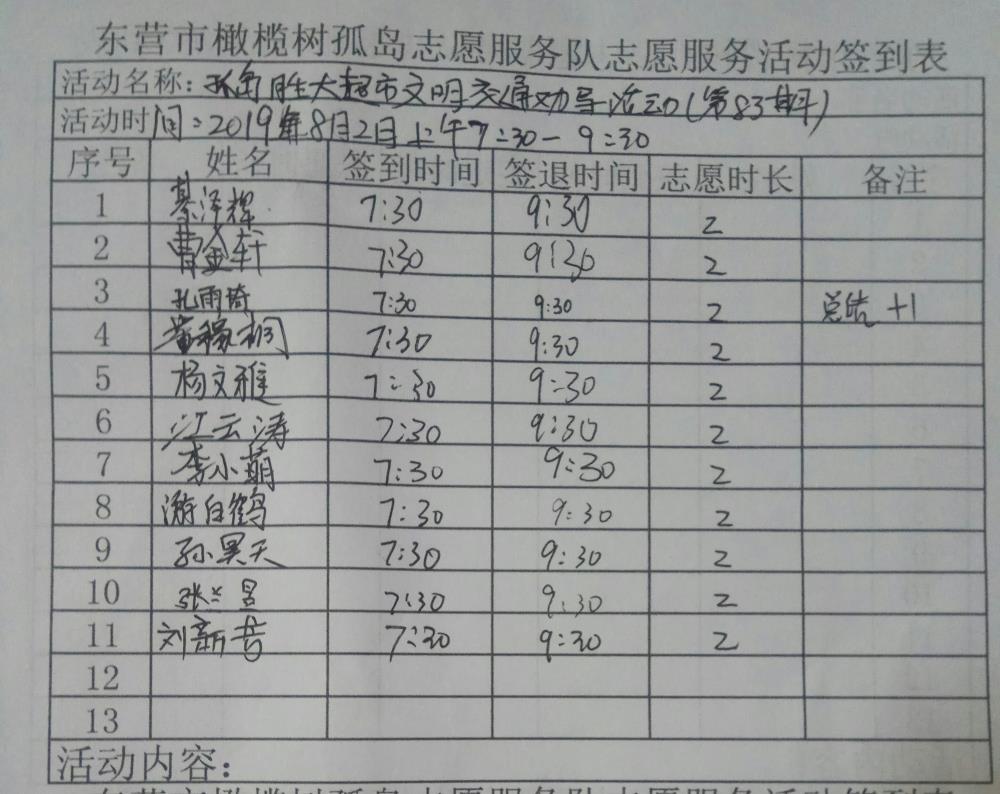 东营市橄榄树孤岛志愿服务队志愿服务活动签到表
活动名称：孤岛胜大超市文明交通劝导活动(第83期)
活动时间：2019年8月2日上午7:30-9:30
序号 姓名 签到时间 签退时间 志愿时长 备注
1 綦泽辉 7:30 9:30 2
2 曹金轩 7:30 9:30 2
3 孔雨琦 7:30 9:30 2 总结 +1
4 7:30 9:30 2
5 杨文雅 7:30 9:30 2
6 江云涛 7:30 9:30 2
7 李小萌 7:30 9:30 2
8 游白鹤 7:30 9:30 2
9 孙昊天 7:30 9:30 2
10 张兰昱 7:30 9:30 2
11 刘新苦 7:30 9:30 2
12
13
活动内容：
东营市橄榄树孤岛志愿服务队志愿服务活动签到表